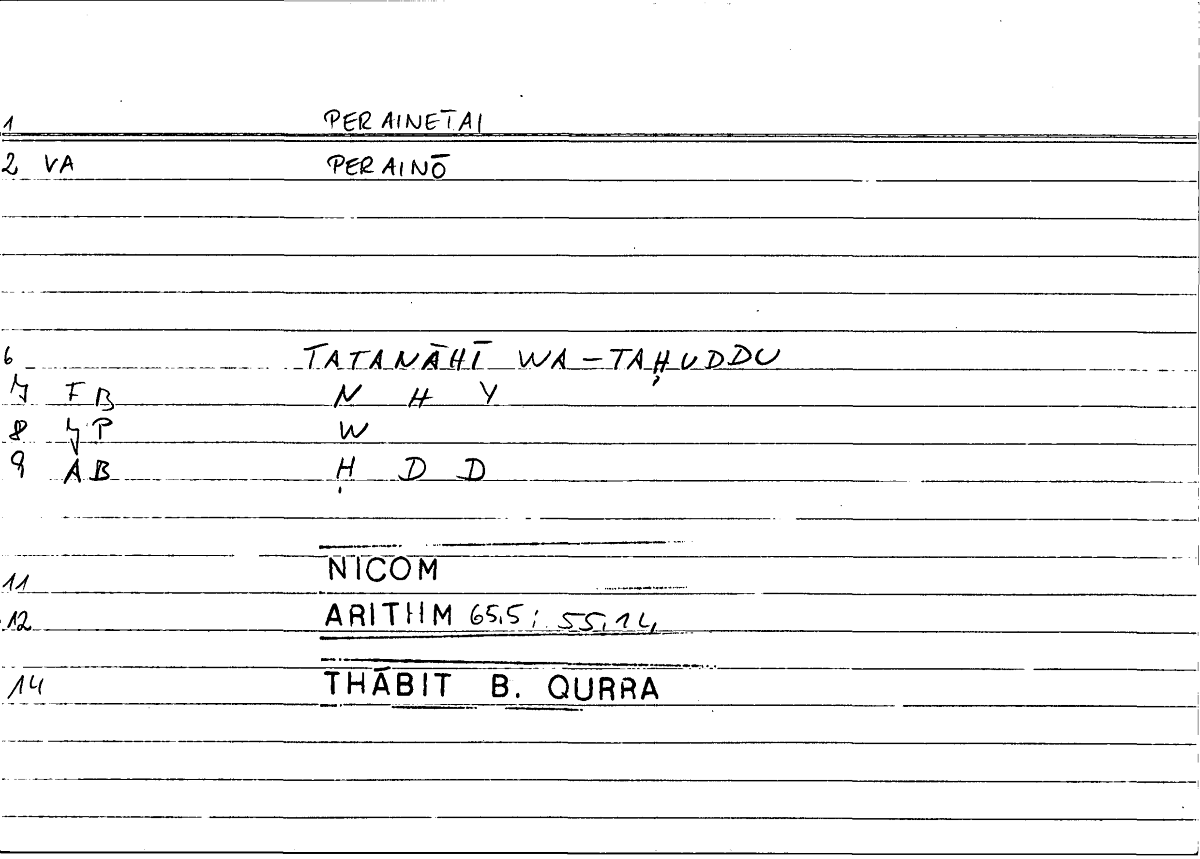 1 PERAINETAI
2 VA PERAINŌ
6 TATANĀHĪ WA-TAḤUDDU
7 FB N H Y
8 P W
9 AB Ḥ D D
11 NICOM
12 ARITHM 65,5; 55,14
14 THĀBIT B. QURRA